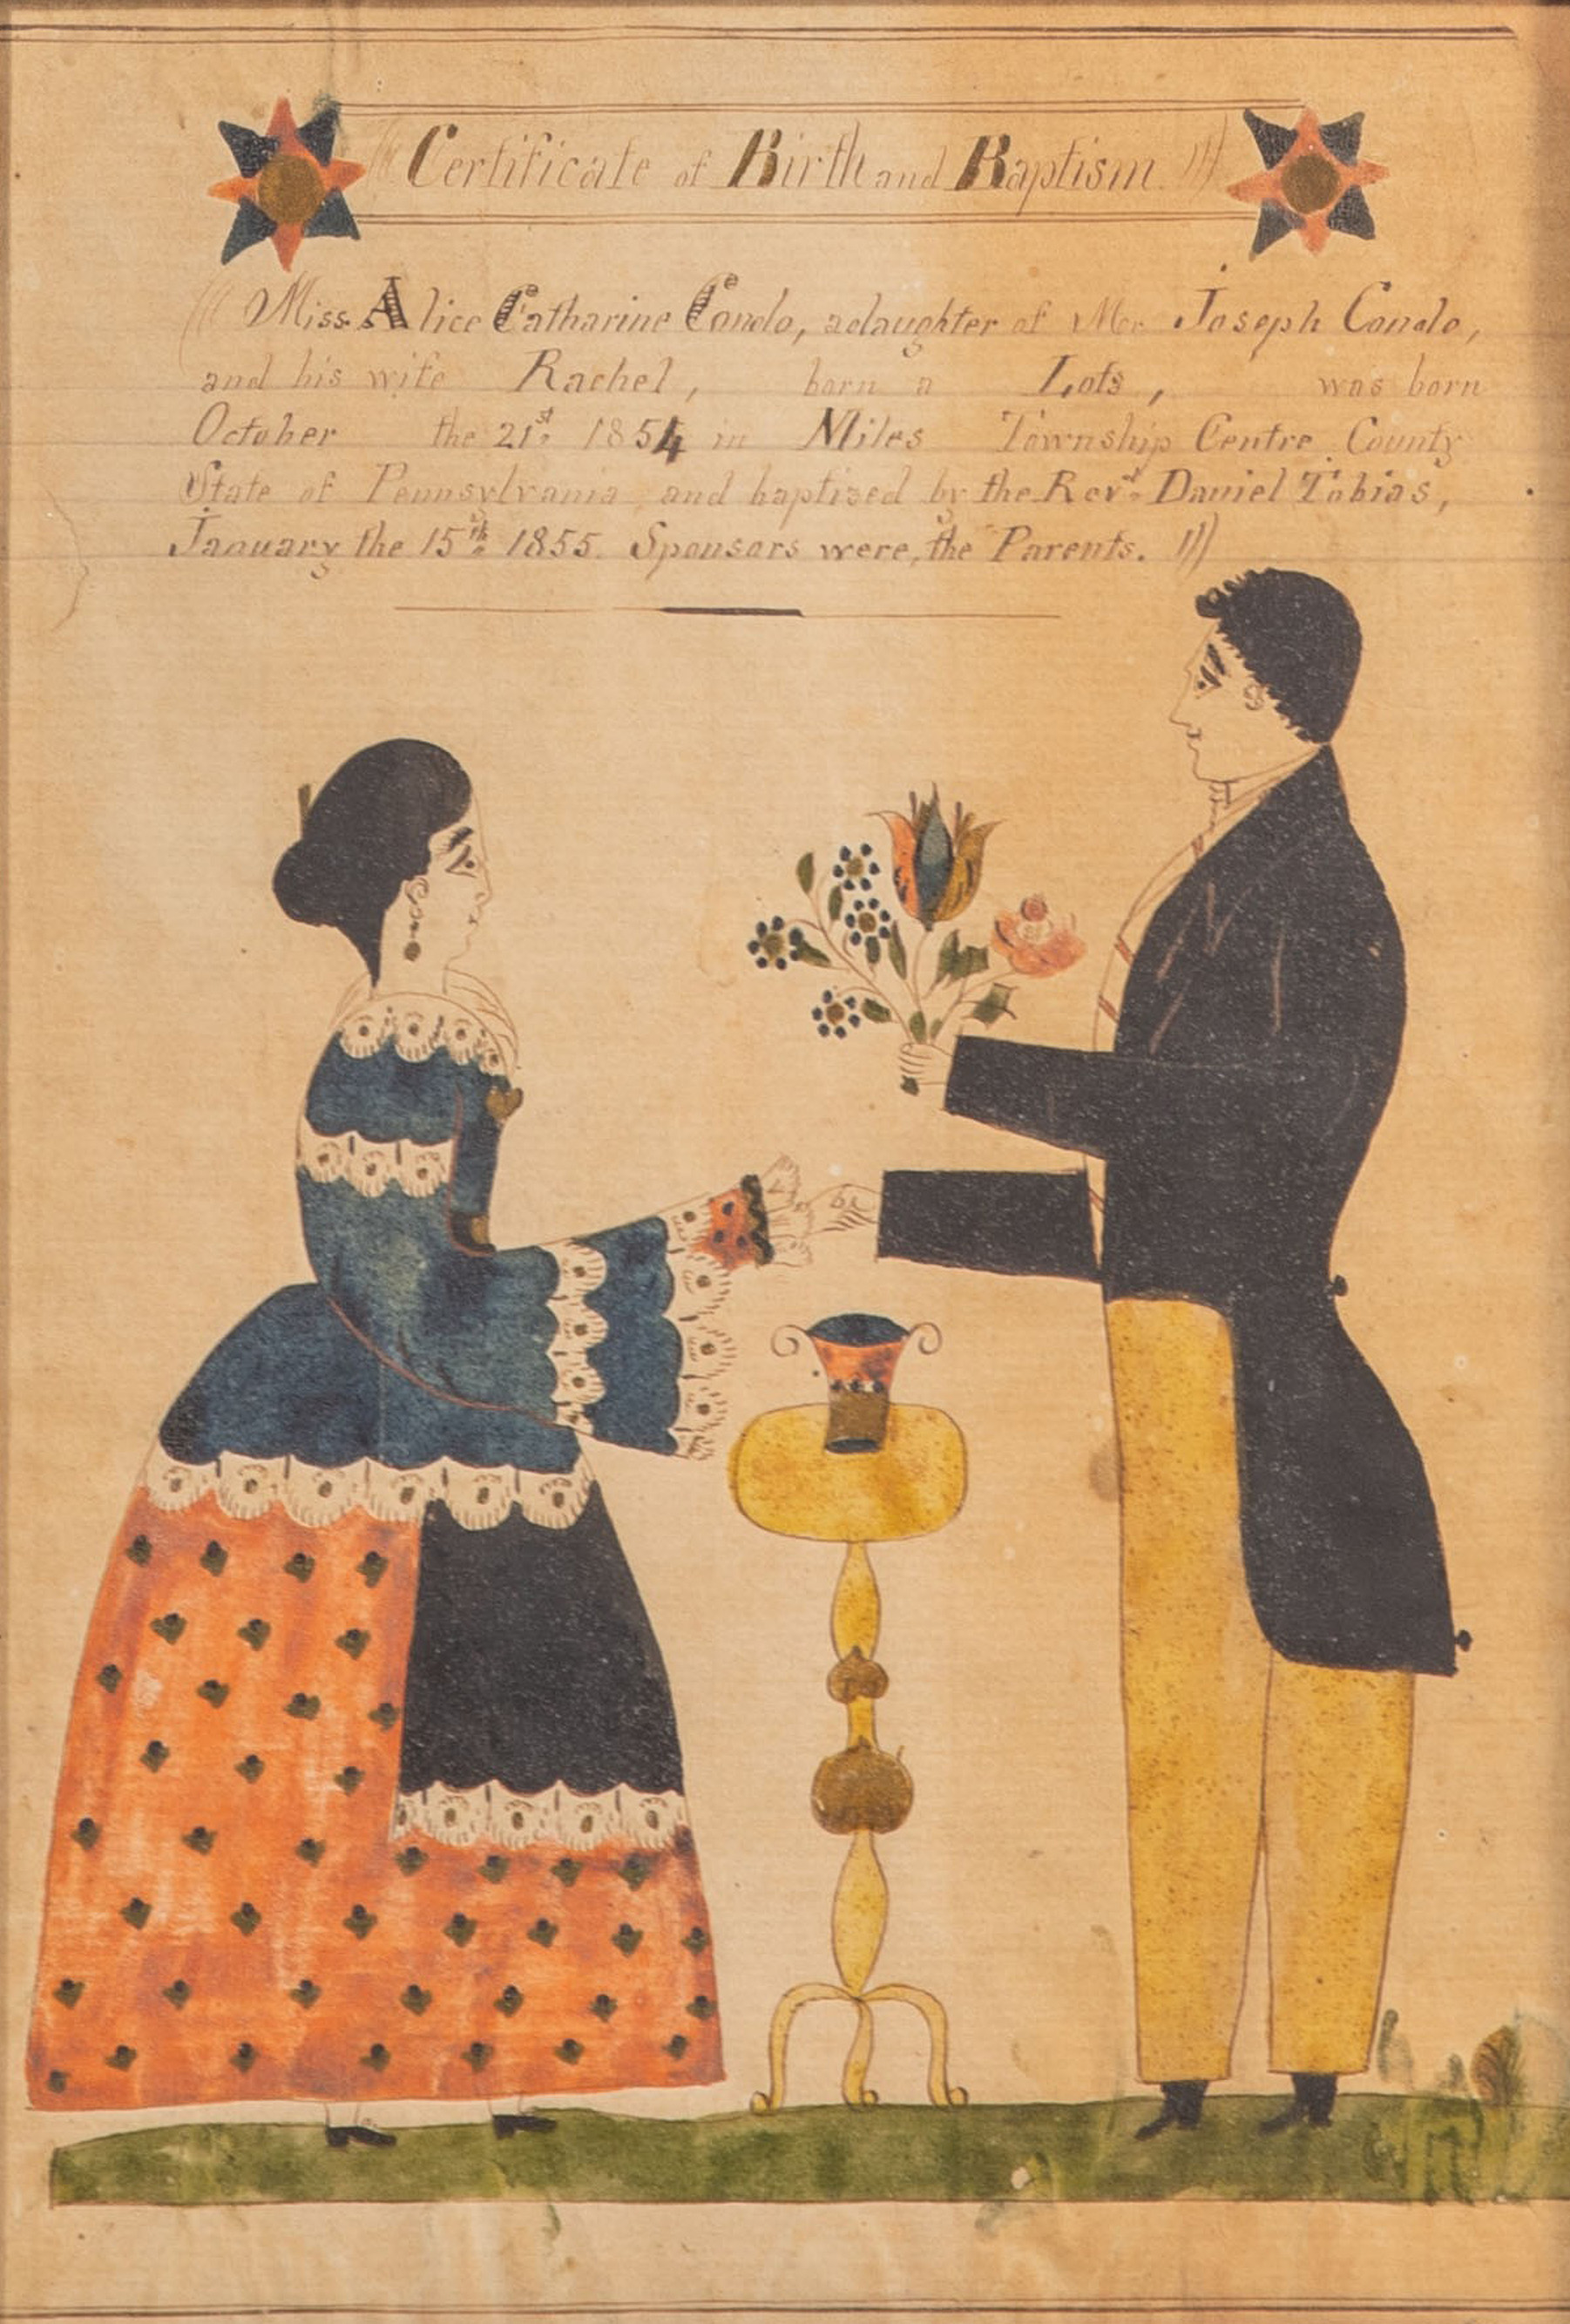 Certificate of Birth and Baptism.
Miss Alice Catharine Condo, a daughter of Mr. Joseph Condo,
and his wife Rachel, born a Lots, was born
October the 21st 1854 in Miles Township Centre County
State of Pennsylvania, and baptized by the Revd Daniel Tobias,
January the 15th 1855. Sponsors were, the Parents.